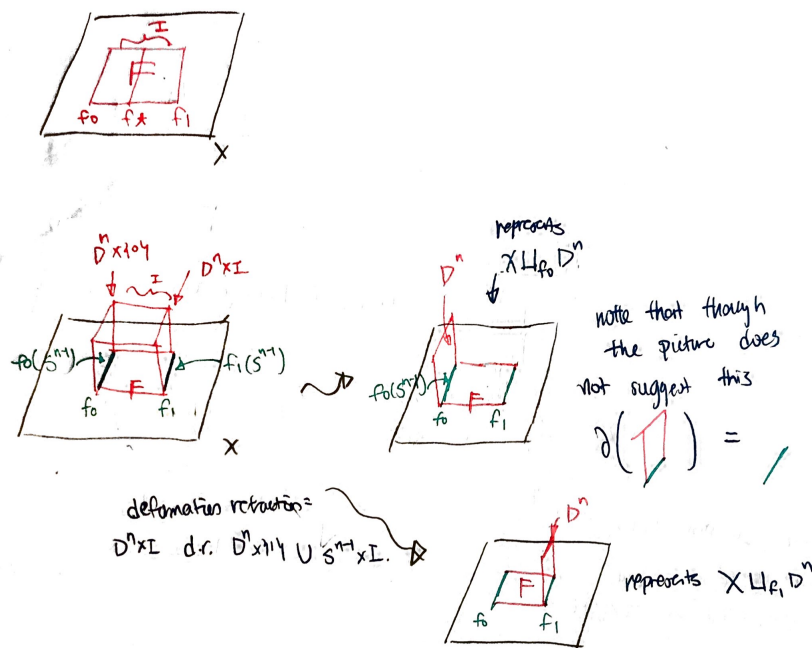 I
F
f₀ f⋆ f₁
X
Dⁿ×{0}
I
Dⁿ×I
f₀(Sⁿ⁻¹)
f₁(Sⁿ⁻¹)
F
f₀ f₁
X
represents
X⊔f₀ Dⁿ
Dⁿ
f₀(Sⁿ⁻¹)
F
f₀ f₁
note that though
the picture does
not suggest this
∂( ) =
deformation retraction =
Dⁿ×I d.r. Dⁿ×{1} ∪ Sⁿ⁻¹×I.
Dⁿ
F
f₀ f₁
represents X⊔f₁ Dⁿ